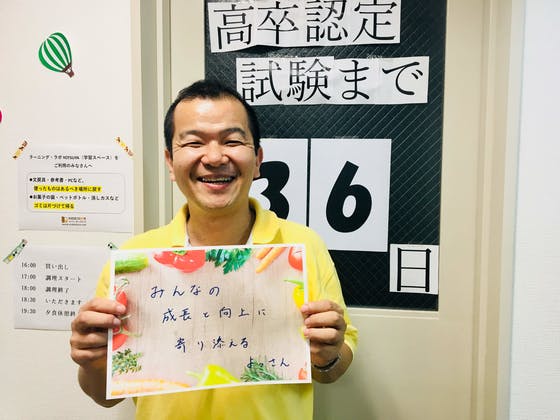 高卒認定
試験まで
36
日
ラーニング・ラボ YOTSUYA「学習スペース」を
ご利用のみなさんへ
●文房具・参考書・PCなど、
使ったものはあるべき場所に戻す
●お菓子の袋・ペットボトル・消しカスなど
ゴミは片づけて帰る
16:00 買い出し
17:00 調理スタート
18:00 調理終了
18:30 いただきます
19:30 夕食休憩終
みんなの
成長と向上に
寄り添える
よっさん